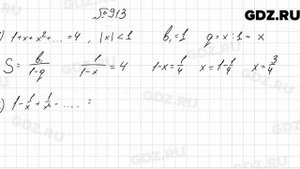 GDZ.RU
№913
) 1+x+x²+...=4, |x|<1 b₁=1 q=x:1=x
S = b₁/(1-q) 1/(1-x) = 4 1-x=1/4 x=1-1/4 x=3/4
) 1-1/x+1/x²-..... =